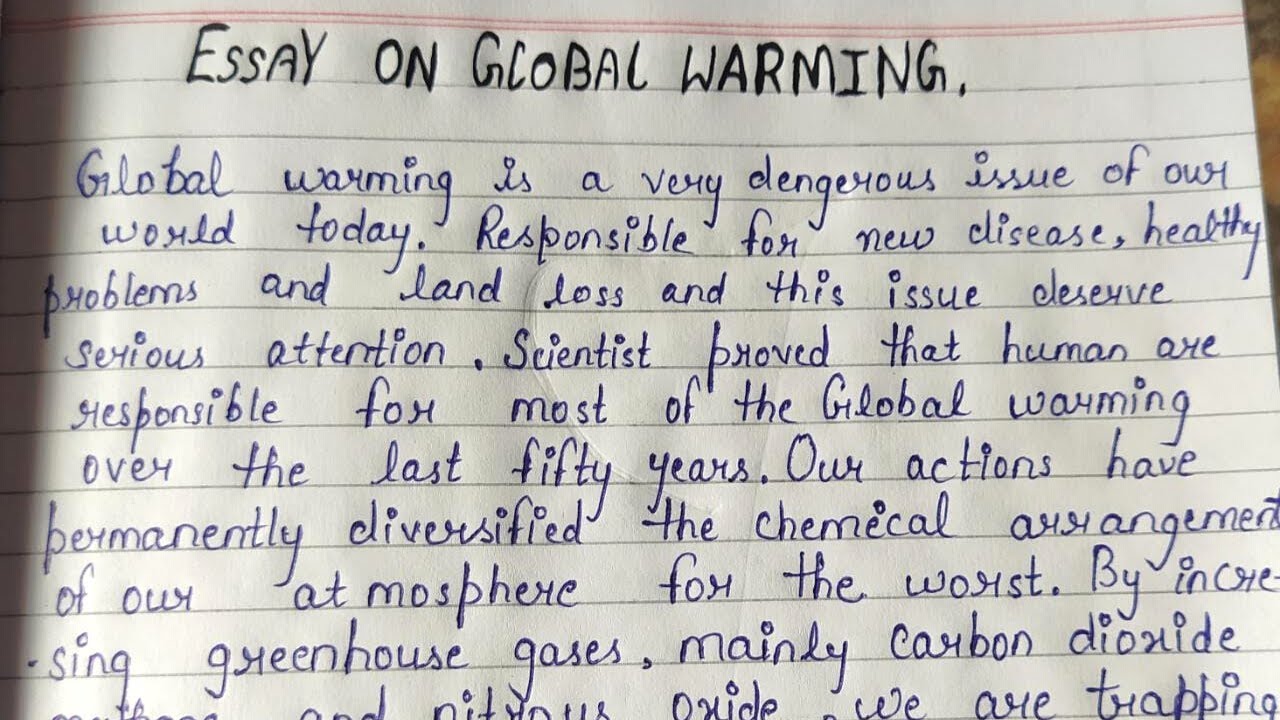 ESSAY ON GLOBAL WARMING.
Global warming is a very dengerous issue of our
world today. Responsible for new disease, healthy
problems and land loss and this issue deserve
serious attention. Scientist proved that human are
responsible for most of the Global warming
over the last fifty years. Our actions have
permanently diversified the chemical arrangement
of our atmosphere for the worst. By incre-
-sing greenhouse gases, mainly carbon dioxide
and nitrous oxide, we are trapping